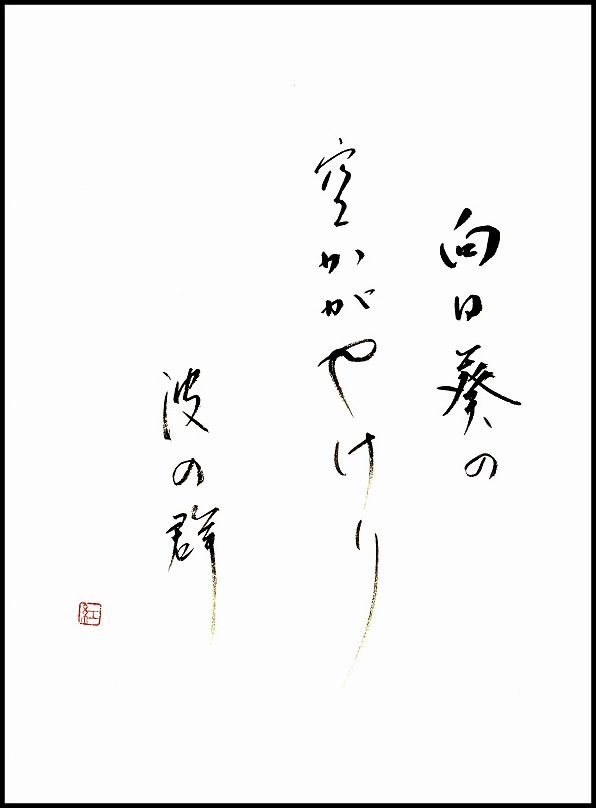 向日葵の
空かがやけり
波の群
紅